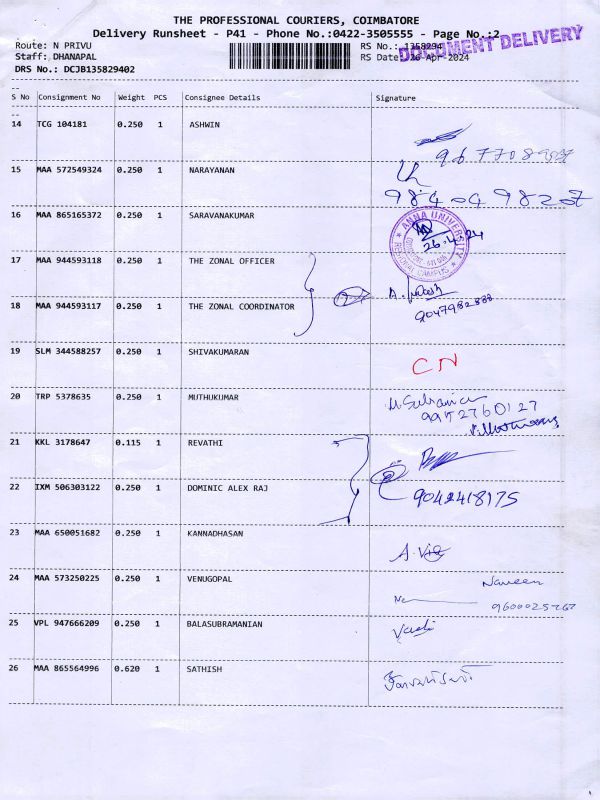 THE PROFESSIONAL COURIERS, COIMBATORE
Delivery Runsheet - P41 - Phone No.:0422-3505555 - Page No.:2
DOCUMENT DELIVERY
Route: N PRIVU
RS No.: 1358294
Staff: DHANAPAL
RS Date: 26 Apr 2024
DRS No.: DCJB135829402
--
S No Consignment No Weight PCS Consignee Details Signature
--
14 TCG 104181 0.250 1 ASHWIN
15 MAA 572549324 0.250 1 NARAYANAN
16 MAA 865165372 0.250 1 SARAVANAKUMAR
ANNA UNIVERSITY
REGIONAL CAMPUS
26.4.24
17 MAA 944593118 0.250 1 THE ZONAL OFFICER
18 MAA 944593117 0.250 1 THE ZONAL COORDINATOR
19 SLM 344588257 0.250 1 SHIVAKUMARAN
CN
20 TRP 5378635 0.250 1 MUTHUKUMAR
21 KKL 3178647 0.115 1 REVATHI
22 IXM 506303122 0.250 1 DOMINIC ALEX RAJ
9042418175
23 MAA 650051682 0.250 1 KANNADHASAN
24 MAA 573250225 0.250 1 VENUGOPAL
Naveen
25 VPL 947666209 0.250 1 BALASUBRAMANIAN
26 MAA 865564996 0.620 1 SATHISH